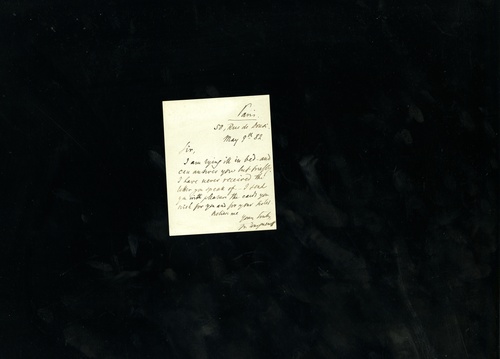 Paris
50, Rue de
May 9th 82
Sir,
I am lying ill in bed and
can answer you but briefly.
I have never received the
letter you speak of. I send
you with pleasure the cards you
wish for you and for your
Believe me
Yours truly